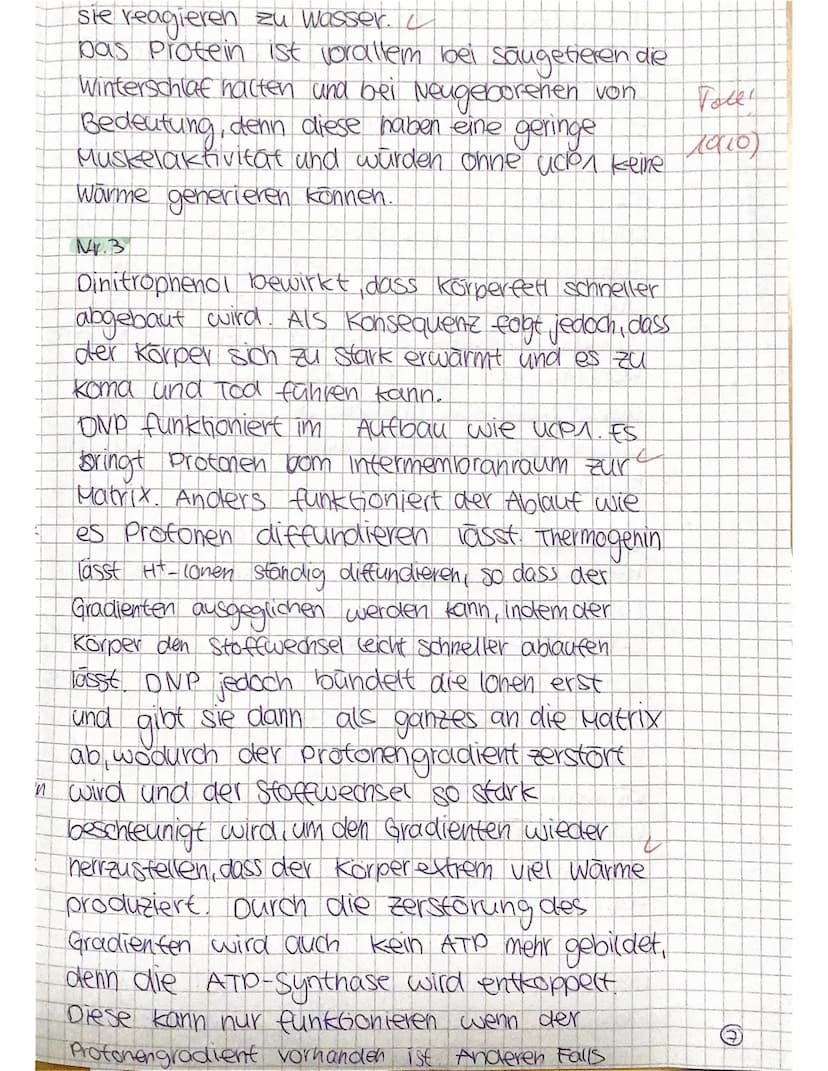 sie reagieren zu Wasser.
Das Protein ist vorallem bei Säugetieren die
Winterschlaf halten und bei Neugeborenen von
Bedeutung, denn diese haben eine geringe
Muskelaktivität und würden ohne UCP1 keine
Wärme generieren können.
Toll!
10(10)
Nr. 3
Dinitrophenol bewirkt, dass Körperfett schneller
abgebaut wird. Als Konsequenz folgt jedoch, dass
der Körper sich zu stark erwärmt und es zu
Koma und Tod führen kann.
DNP funktioniert im Aufbau wie UCP1. Es
bringt Protonen vom Intermembranraum zur
Matrix. Anders funktioniert der Ablauf wie
es Protonen diffundieren lässt. Thermogenin
lässt H+-Ionen ständig diffundieren, so dass der
Gradienten ausgeglichen werden kann, indem der
Körper den Stoffwechsel leicht schneller ablaufen
lässt. DNP jedoch bündelt die Ionen erst
und gibt sie dann als ganzes an die Matrix
ab, wodurch der Protonengradient zerstört
n wird und der Stoffwechsel so stark
beschleunigt wird, um den Gradienten wieder
herrzustellen, dass der Körper extrem viel Wärme
produziert. Durch die Zerstörung des
Gradienten wird auch kein ATP mehr gebildet,
denn die ATP-Synthase wird entkoppelt.
Diese kann nur funktionieren wenn der
Protonengradient vorhanden ist. Anderen Falls
7